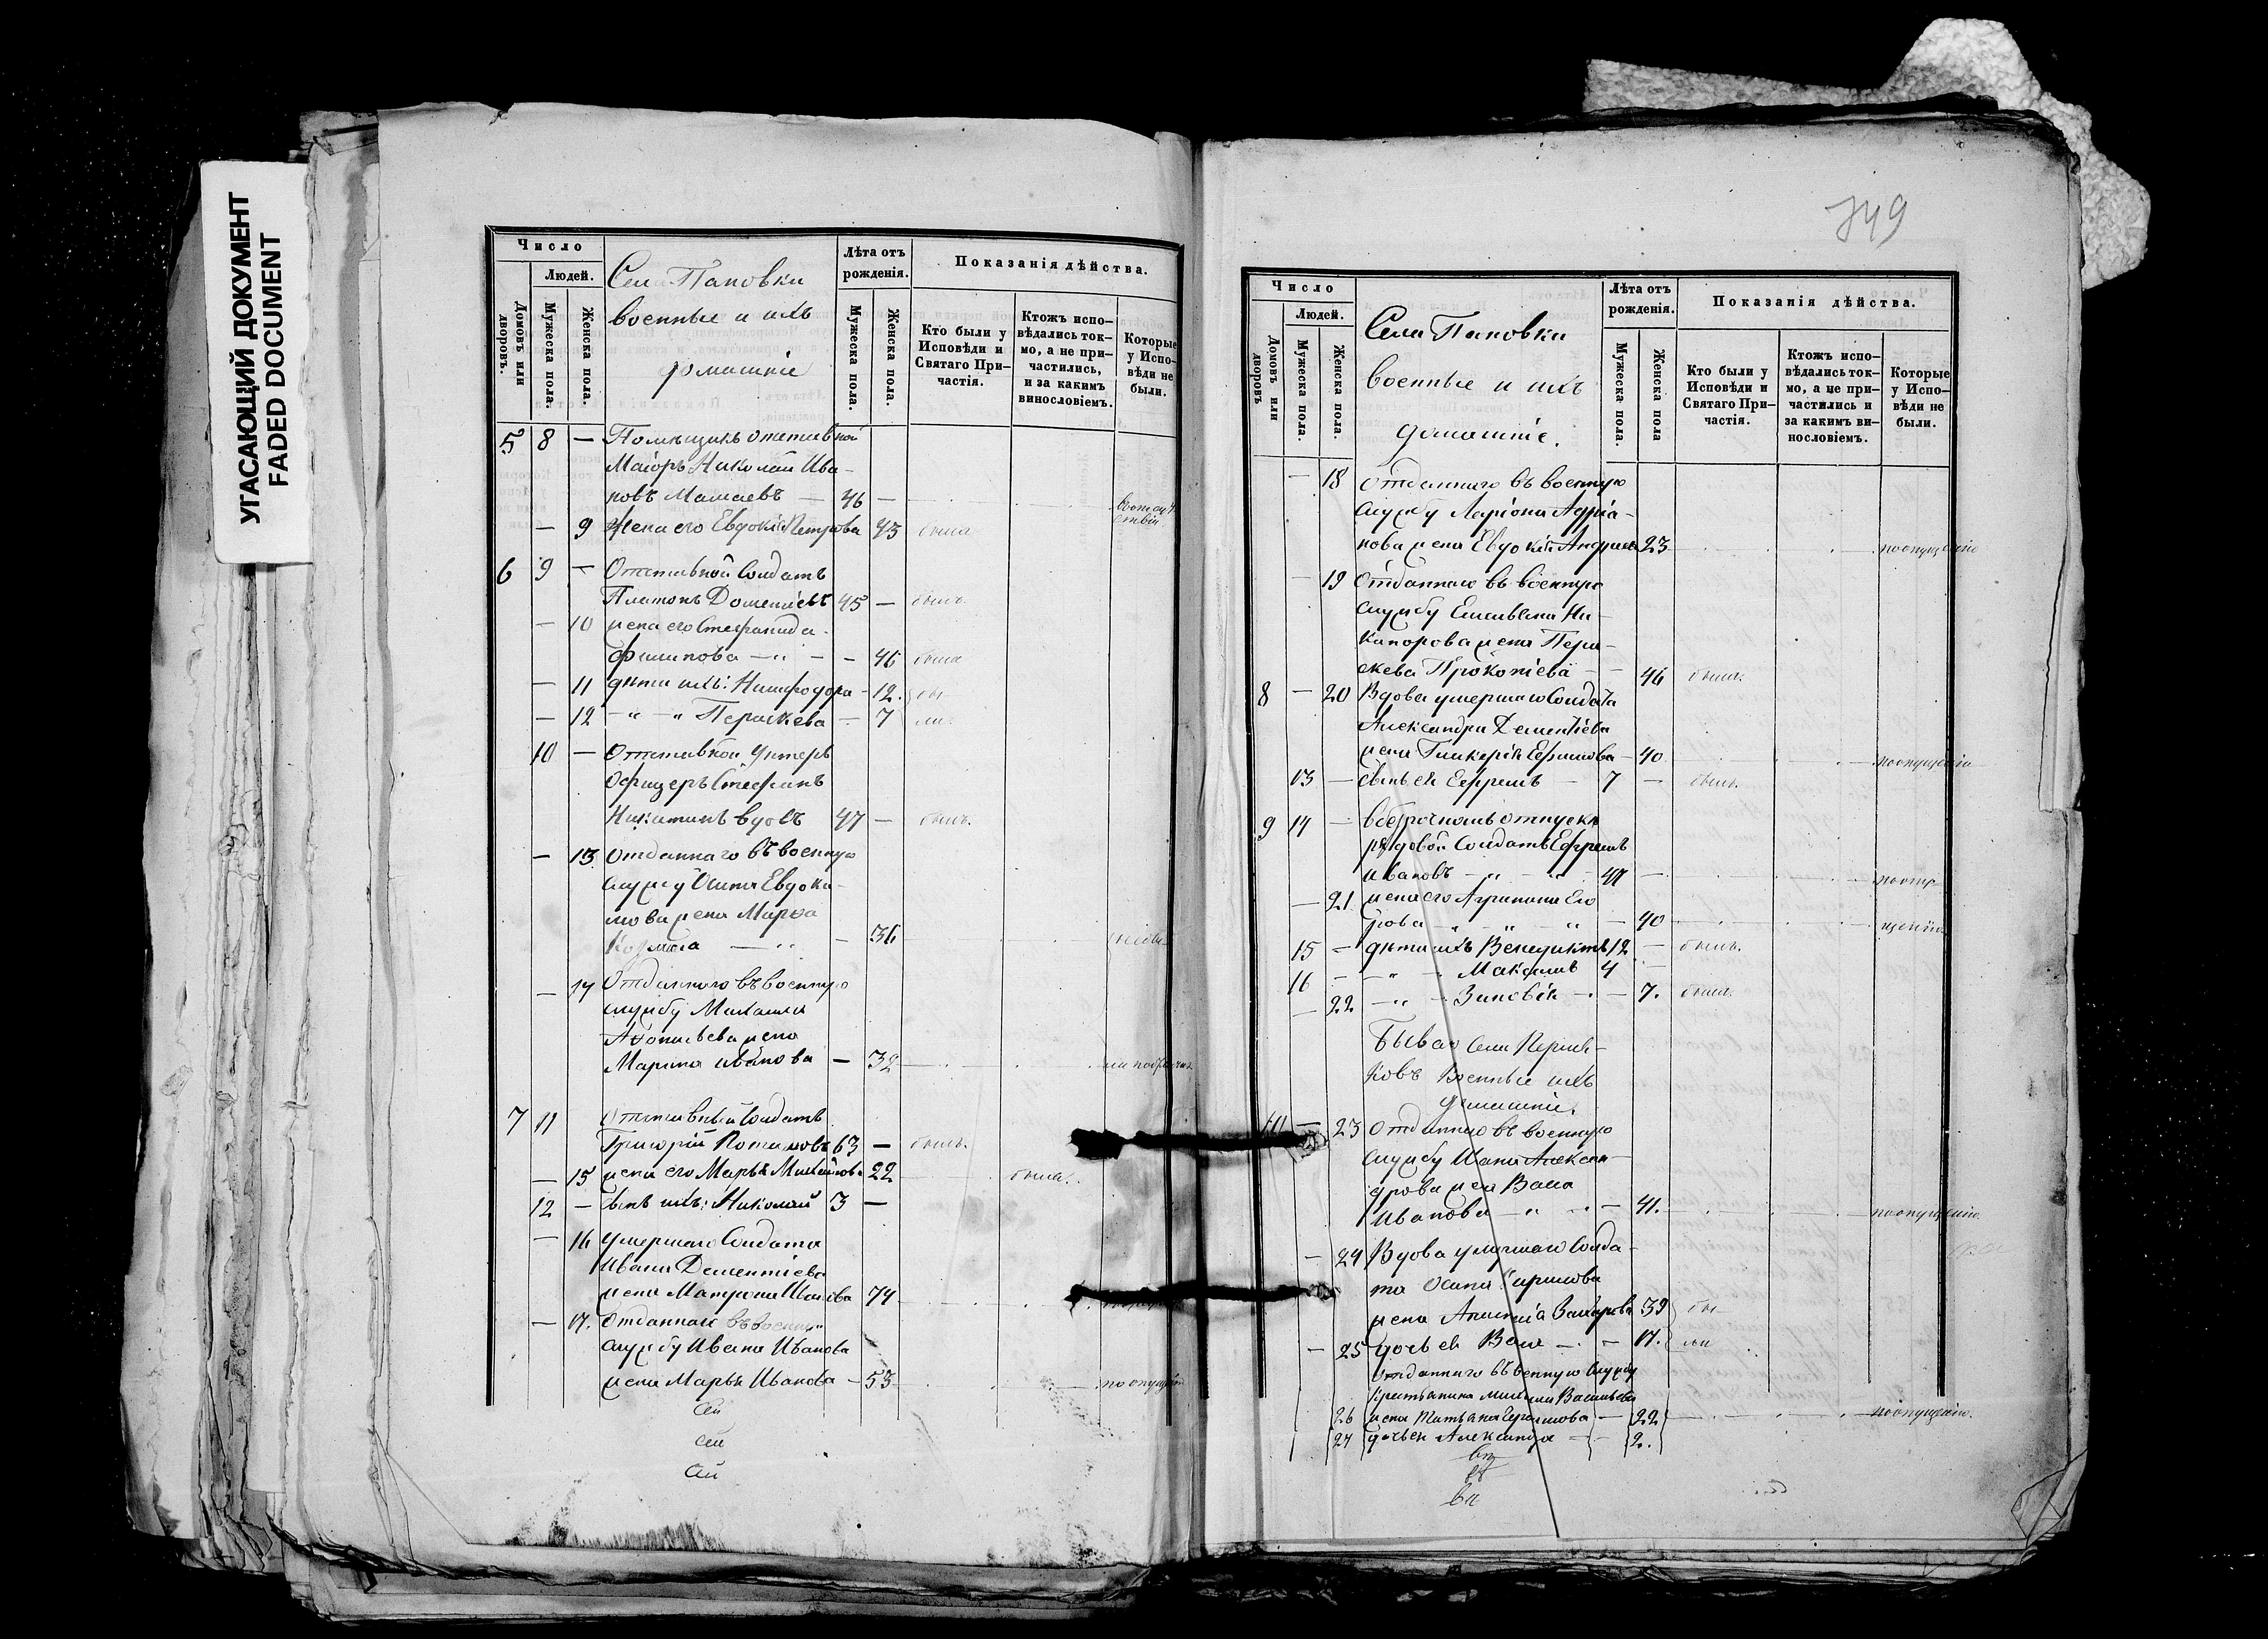 УГАСАЮЩИЙ ДОКУМЕНТ
FADED DOCUMENT
Число
Людей.
Домовъ или дворовъ.
Мужеска пола.
Женска пола.
Села Пановки
военные и ихъ
домашніе
Лѣта отъ рожденія.
Мужеска пола.
Женска пола.
Показанія дѣйства.
Кто были у Исповѣди и Святаго При-
частія.
Ктожъ испо-
вѣдались ток-
мо, а не при-
частились,
и за какимъ
винословіемъ.
Которые
у Испо-
вѣди не
были.
5 8 — Помѣщикъ отставной
Маіоръ Николай Ива-
новъ Мамаевъ — 46 —
— 9 Жена его Евдокія Петрова 43 была
6 9 — Отставной Солдатъ
Платонъ Дометіевъ 45 — былъ.
— 10 жена его Стефанида
Филипова — „ — — 46 была
— 11 дѣти ихъ: Нимфодора - 12. бы
— 12 — „ — „ Параскева — 7 ли.
10 — Отставной Унтеръ
Офицеръ Стефанъ
Никитинъ вдовъ 47 — былъ.
— 13 Отданнаго въ военную
службу Осипа Евдоки-
мова жена Марѳа
— „ — 36
— 14 Отданнаго въ военную
службу Михаила
жена
Марина Иванова — 32
7 11 Отставный Солдатъ
Григорій Потаповъ 63 — былъ.
— 15 жена его Марья Михайлова 22 была.
12 — сынъ ихъ: Николай 3 —
— 16 Умершаго Солдата
Ивана Дементіева
жена Матрона Иванова 74
— 17. Отданнаго въ военную
службу Ивана Иванова
жена Марья Иванова — 53 по опущенію
749
Число
Людей.
Домовъ или дворовъ
Мужеска пола.
Женска пола.
Села Пановки
военные и ихъ
домашніе.
Лѣта отъ рожденія.
Мужеска пола.
Женска пола
Показанія дѣйства.
Кто были у
Исповѣди и
Святаго При-
частія.
Ктожъ испо-
вѣдались ток-
мо, а не при-
частились и
за какимъ ви-
нословіемъ.
Которые
у Испо-
вѣди не
были.
— 18 Отданнаго въ военную
службу Ларіона Адріа-
нова жена Евдокія 23 по опущенію
— 19 Отданнаго въ военную
службу Емельяна Ни-
канорова жена Пара-
скева Прокопіева — 46 была.
8 — 20 Вдова умершаго Солдата
Александра Дементіева
жена Гликерія Ефимова — 40 по опущенію
13 — сынъ ея Ефремъ — 7 — былъ.
9 14 — в безсрочномъ отпуску
рядовой Солдатъ Ефремъ
Ивановъ — „ — „ — — по опу-
— 21 жена его Агрипина Его
рова „ „ „ — 40 щенію
15 — дѣти ихъ Венедиктъ 12 — былъ.
16 — — „ — Максимъ 4 —
— 22 — „ — Зиновія — — 7. была.
Бывао Села
Военные ихъ
домашніе.
10 — 23 Отданнаго въ военную
службу Ивана Алексан-
дрова жена Васса
Иванова — „ — — 41. по опущенію.
— 24 Вдова умершаго Солда-
та Осипа
жена Захарова 39 бы
— 25 дочь ея Васса — — 17. ли
Отданнаго въ военную службу
Крестьянина Михаила Васильева
26 жена Татьяна Герасимова — 22 по опущенію.
27 дочь ея Александра — — 2.